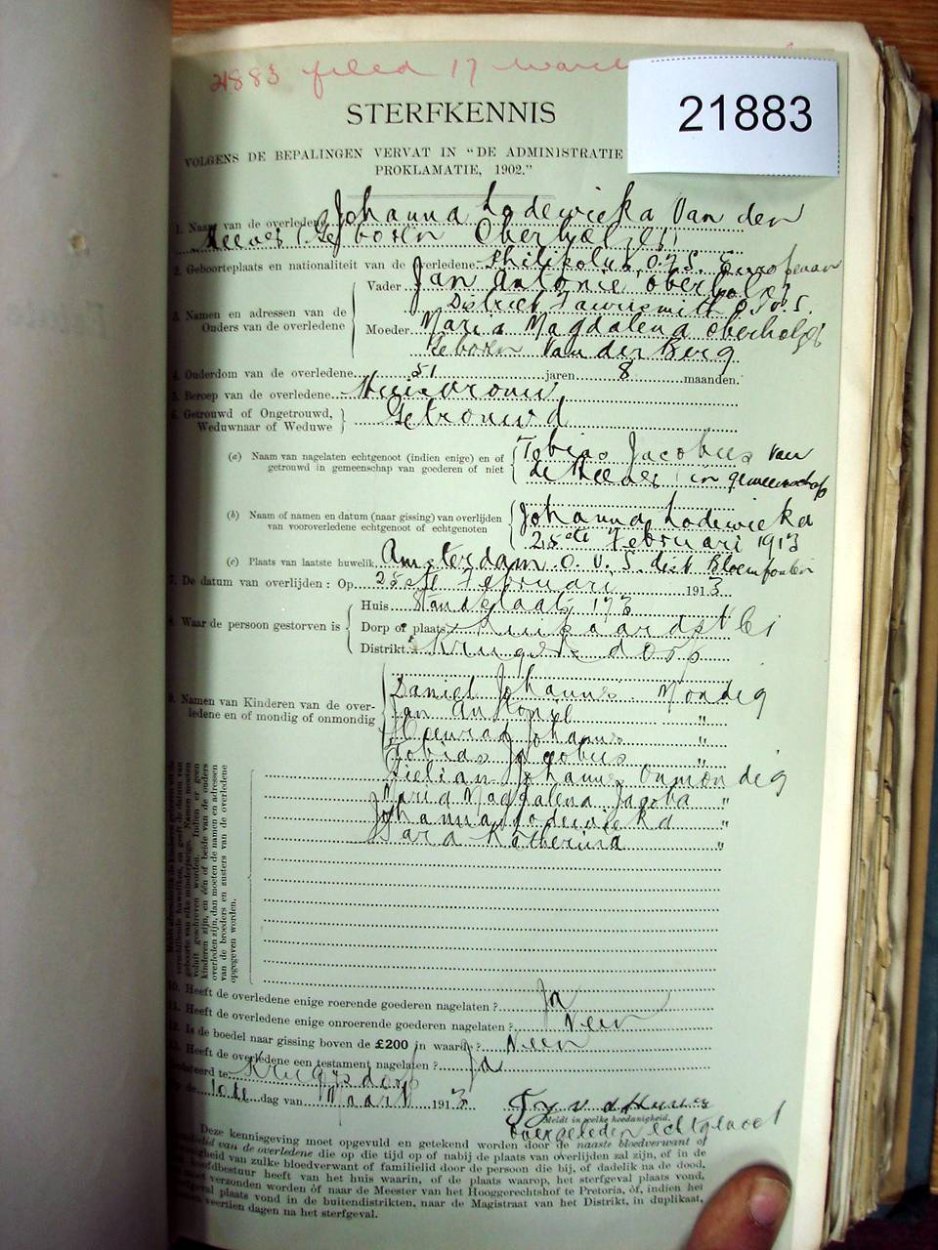 21883 filed 17 March
21883
STERFKENNIS
VOLGENS DE BEPALINGEN VERVAT IN "DE ADMINISTRATIE
PROKLAMATIE, 1902."
1. Naam van de overledene Johanna Lodewieka Van den
Heever (Geboren Oberholzer)
2. Geboorteplaats en nationaliteit van de overledene. Philipolis O.V.S. Europeaan
3. Namen en adressen van de Ouders van de overledene
Vader Jan Antonie Oberholzer
District Fauresmith O.V.S.
Moeder Maria Magdalena Oberholzer
Geboren Van der Berg
4. Ouderdom van de overledene 51 jaren 8 maanden.
5. Beroep van de overledene Huisvrouw
6. Getrouwd of Ongetrouwd, Weduwnaar of Weduwe } Getrouwd
(a) Naam van nagelaten echtgenoot (indien enige) en of
getrouwd in gemeenschap van goederen of niet
Tobias Jacobus van
de Heever in gemeenschap
(b) Naam of namen en datum (naar gissing) van overlijden
van vooroverledene echtgenoot of echtgenoten
Johanna Lodewieka
28ste Februari 1913
(c) Plaats van laatste huwelik, Amsterdam O.V.S. dist Bloemfontein
7. De datum van overlijden : Op 28ste Februari 1913
8. Waar de persoon gestorven is
Huis Standplaats 173
Dorp of plaats
Distrikt Krugersdorp
9. Namen van Kinderen van de over-
ledene en of mondig of onmondig
Daniel Johannes Mondig
Jan Antonie "
Johannes "
Tobias Jacobus "
Johannes Onmondig
Maria Magdalena Jacoba "
Johanna Lodewieka "
Sara Katherina "
van de broeders en zusters van de overledene
opgegeven worden.
10. Heeft de overledene enige roerende goederen nagelaten ? Ja
11. Heeft de overledene enige onroerende goederen nagelaten ? Neen
12. Is de boedel naar gissing boven de £200 in waarde ? Neen
13. Heeft de overledene een testament nagelaten ? Ja
Gedateerd te Krugersdorp
de 10de dag van Maart 1913
Meldt in welke hoedanigheid.
Deze kennisgeving moet opgevuld en getekend worden door de naaste bloedverwant of
familielid van de overledene die op die tijd op of nabij de plaats van overlijden zal zijn, of in de
afwezigheid van zulke bloedverwant of familielid door de persoon die bij, of dadelik na de dood,
hoofdbestuur heeft van het huis waarin, of de plaats waarop, het sterfgeval plaats vond,
moet verzonden worden òf naar de Meester van het Hooggerechtshof te Pretoria, òf, indien het
sterfgeval plaats vond in de buitendistrikten, naar de Magistraat van het Distrikt, in duplikaat,
veertien dagen na het sterfgeval.